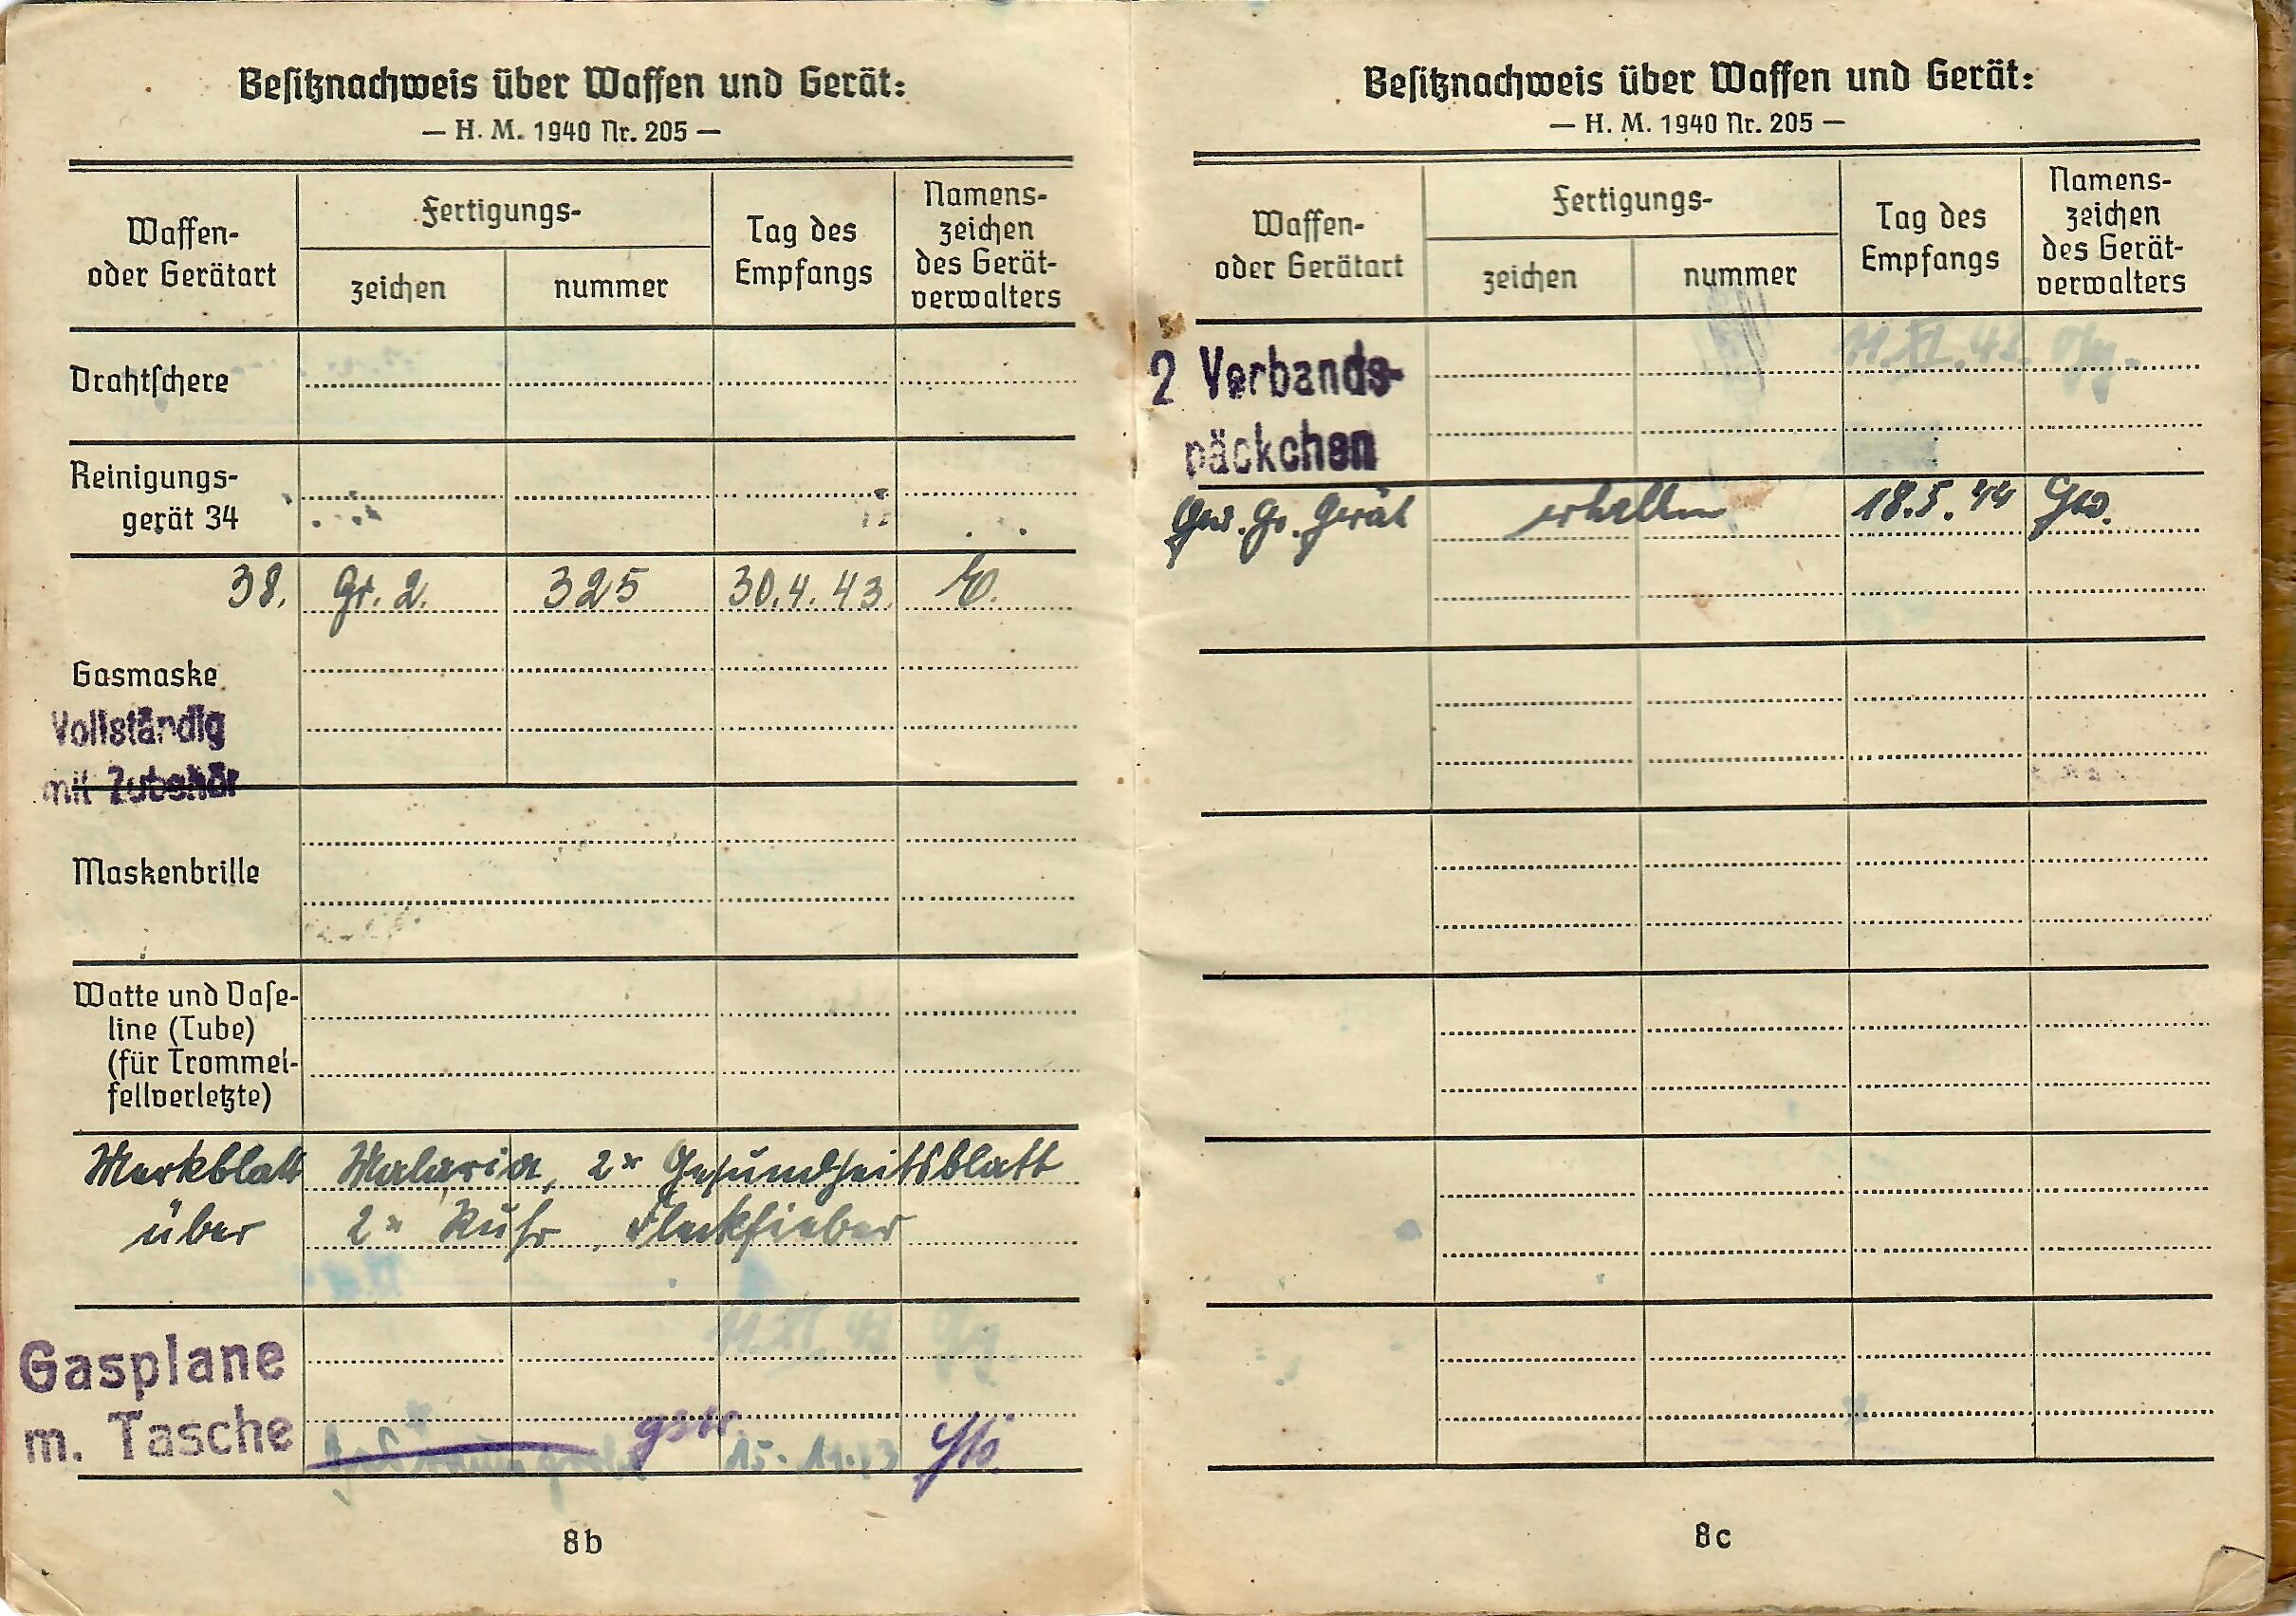 Besitznachweis über Waffen und Gerät:
— H. M. 1940 Nr. 205 —
Waffen-
oder Gerätart
Fertigungs-
zeichen
nummer
Tag des
Empfangs
Namens-
zeichen
des Gerät-
verwalters
Drahtschere
Reinigungs-
gerät 34
38. Gr. 2. 325 30.4.43.
Gasmaske
Vollständig
mit Zubehör
Maskenbrille
Watte und Vase-
line (Tube)
(für Trommel-
fellverletzte)
Merkblatt Malaria, 2x Gesundheitsblatt
über 2x Ruhr, Fleckfieber
11.XI.43
Gasplane
m. Tasche 15.11.43
8b
Besitznachweis über Waffen und Gerät:
— H. M. 1940 Nr. 205 —
Waffen-
oder Gerätart
Fertigungs-
zeichen
nummer
Tag des
Empfangs
Namens-
zeichen
des Gerät-
verwalters
11.XI.43.
2 Verbands-
päckchen
Gew. Gr. Gerät erhalten 18.5.44
8c